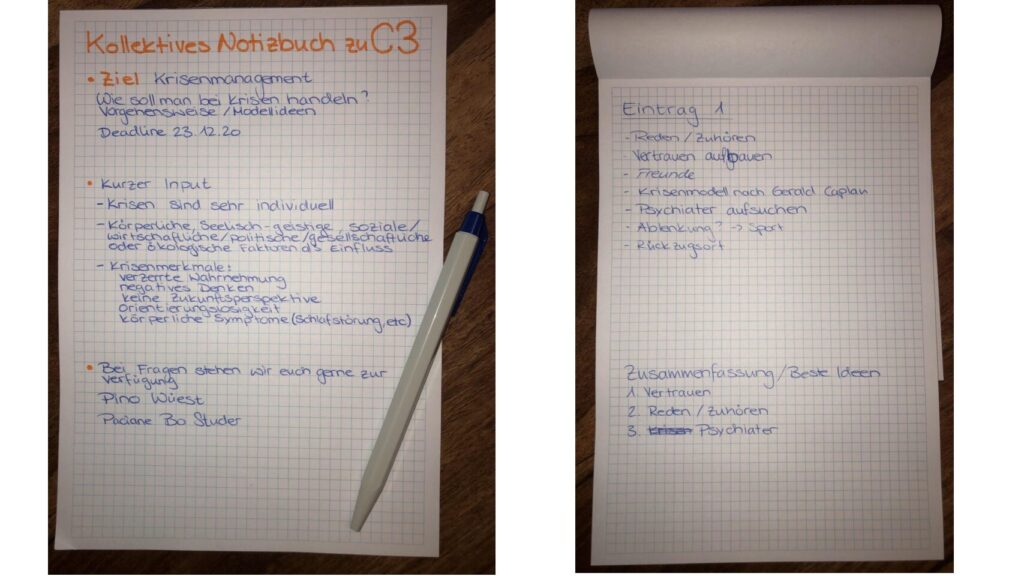 Kollektives Notizbuch zu C3
• Ziel Krisenmanagement
Wie soll man bei Krisen handeln?
Vorgehensweise / Modellideen
Deadline 23.12.20
• Kurzer Input
- Krisen sind sehr individuell
- Körperliche, Seelisch-geistige, soziale/
wirtschaftliche/politische/gesellschaftliche
oder ökologische Faktoren als Einfluss
- Krisenmerkmale:
verzerrte Wahrnehmung
negatives Denken
keine Zukunftsperspektive
Orientierungslosigkeit
körperliche Symptome (Schlafstörung, etc)
• Bei Fragen stehen wir euch gerne zur
Verfügung
Pino Wüest
Bo Studer
Eintrag 1
- Reden / Zuhören
- Vertrauen aufbauen
- Freunde
- Krisenmodell nach Gerald Caplan
- Psychiater aufsuchen
- Ablenkung? -> Sport
- Rückzugsort
Zusammenfassung / Beste Ideen
1. Vertrauen
2. Reden / Zuhören
3. Krisen Psychiater